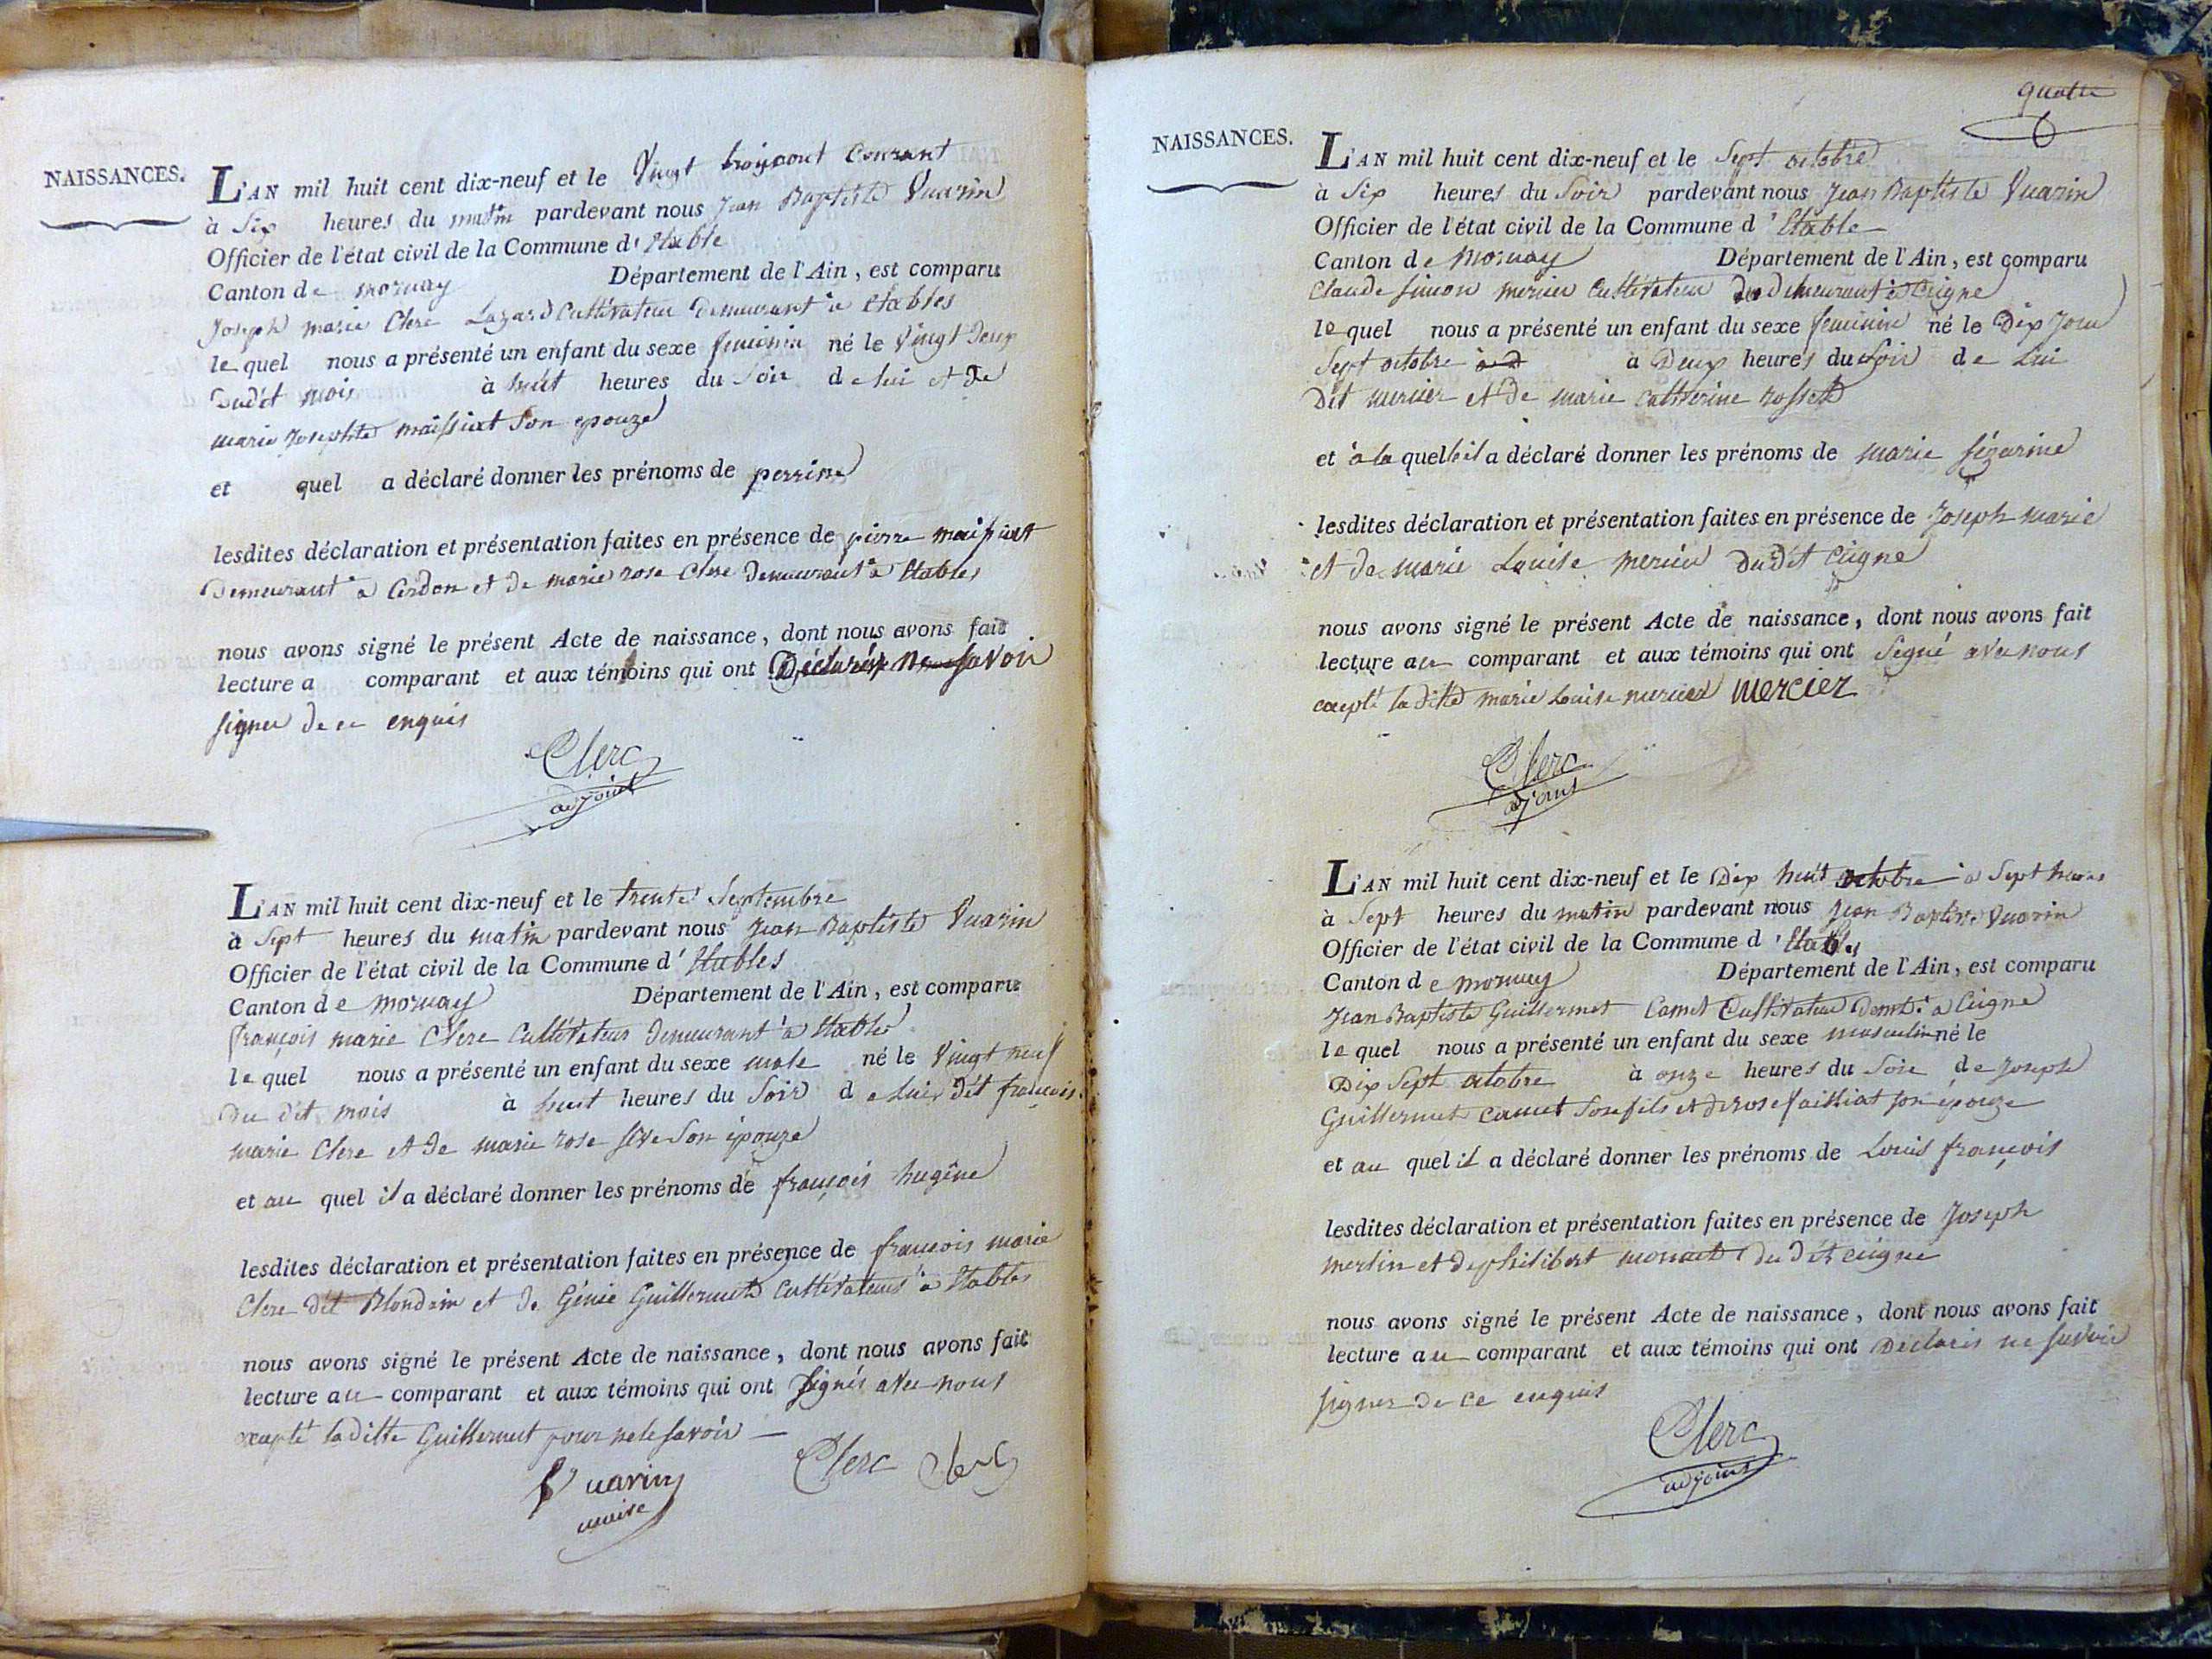 NAISSANCES.
L'AN mil huit cent dix-neuf et le Vingt trois aout Courant
à Six heures du matin pardevant nous Jean Baptiste Vuarin
Officier de l'état civil de la Commune d' Etable
Canton de mornay Département de l'Ain, est comparu
Joseph marie Clerc Lazard Cultivateur Demeurant à Etables
lequel nous a présenté un enfant du sexe feminin né le Vingt Deux
Dudit mois à huit heures du Soir de lui et de
marie Josephte maissiat Son epouze
et quel a déclaré donner les prénoms de perrine
lesdites déclaration et présentation faites en présence de pierre maissiat
Demeurant à Cerdon et de marie rose Clerc Demeurant à Etables
nous avons signé le présent Acte de naissance, dont nous avons fait
lecture a comparant et aux témoins qui ont Déclarés ne savoir
signer de ce enquis
Clerc
adjoint
L'AN mil huit cent dix-neuf et le trente Septembre
à Sept heures du matin pardevant nous Jean Baptiste Vuarin
Officier de l'état civil de la Commune d' Etables
Canton de mornay Département de l'Ain, est comparu
françois marie Clerc Cultivateur Demeurant à Etables
lequel nous a présenté un enfant du sexe male né le Vingt neuf
Du dit mois à huit heures du Soir de Lui Dit françois
marie Clerc et de marie rose Son épouze
et au quel il a déclaré donner les prénoms de françois hugêne
lesdites déclaration et présentation faites en présence de françois marie
Clerc dit Blondin et de Génie Guillermet Cultivateurs à Etables
nous avons signé le présent Acte de naissance, dont nous avons fait
lecture au comparant et aux témoins qui ont signés avec nous
excepté la ditte Guillermet pour ne le savoir
Vuarin Clerc Clerc
maire
quatre
NAISSANCES.
L'AN mil huit cent dix-neuf et le Sept octobre
à Six heures du Soir pardevant nous Jean Baptiste Vuarin
Officier de l'état civil de la Commune d' Etable
Canton de Mornay Département de l'Ain, est comparu
Claude Simon mercier Cultivateur Demeurant à Ceigne
lequel nous a présenté un enfant du sexe feminin né le Dix
Sept octobre à Deux heures du Soir de Lui
Dit mercier et de marie Catherine rosset
et à la quelle il a déclaré donner les prénoms de marie Sézarine
lesdites déclaration et présentation faites en présence de Joseph marie
et de marie Louise mercier Dudit Ceigne
nous avons signé le présent Acte de naissance, dont nous avons fait
lecture au comparant et aux témoins qui ont Segné avec nous
excepté la ditte marie Louise mercier mercier
Clerc
adjoint
L'AN mil huit cent dix-neuf et le Dix huit octobre à Sept heures
à Sept heures du matin pardevant nous Jean Baptiste Vuarin
Officier de l'état civil de la Commune d' Etables
Canton de mornay Département de l'Ain, est comparu
Jean Baptiste Guillermet Camet Cultivateur Demt. à Ceigne
lequel nous a présenté un enfant du sexe masculin né le
Dix Sept octobre à onze heures du Soir de Joseph
Guillermet camet Son fils et de rose son épouze
et au quel il a déclaré donner les prénoms de Louis françois
lesdites déclaration et présentation faites en présence de Joseph
merlin et de philibert Du dit ceigne
nous avons signé le présent Acte de naissance, dont nous avons fait
lecture au comparant et aux témoins qui ont Declarés ne savoir
signer de ce enquis
Clerc
adjoint